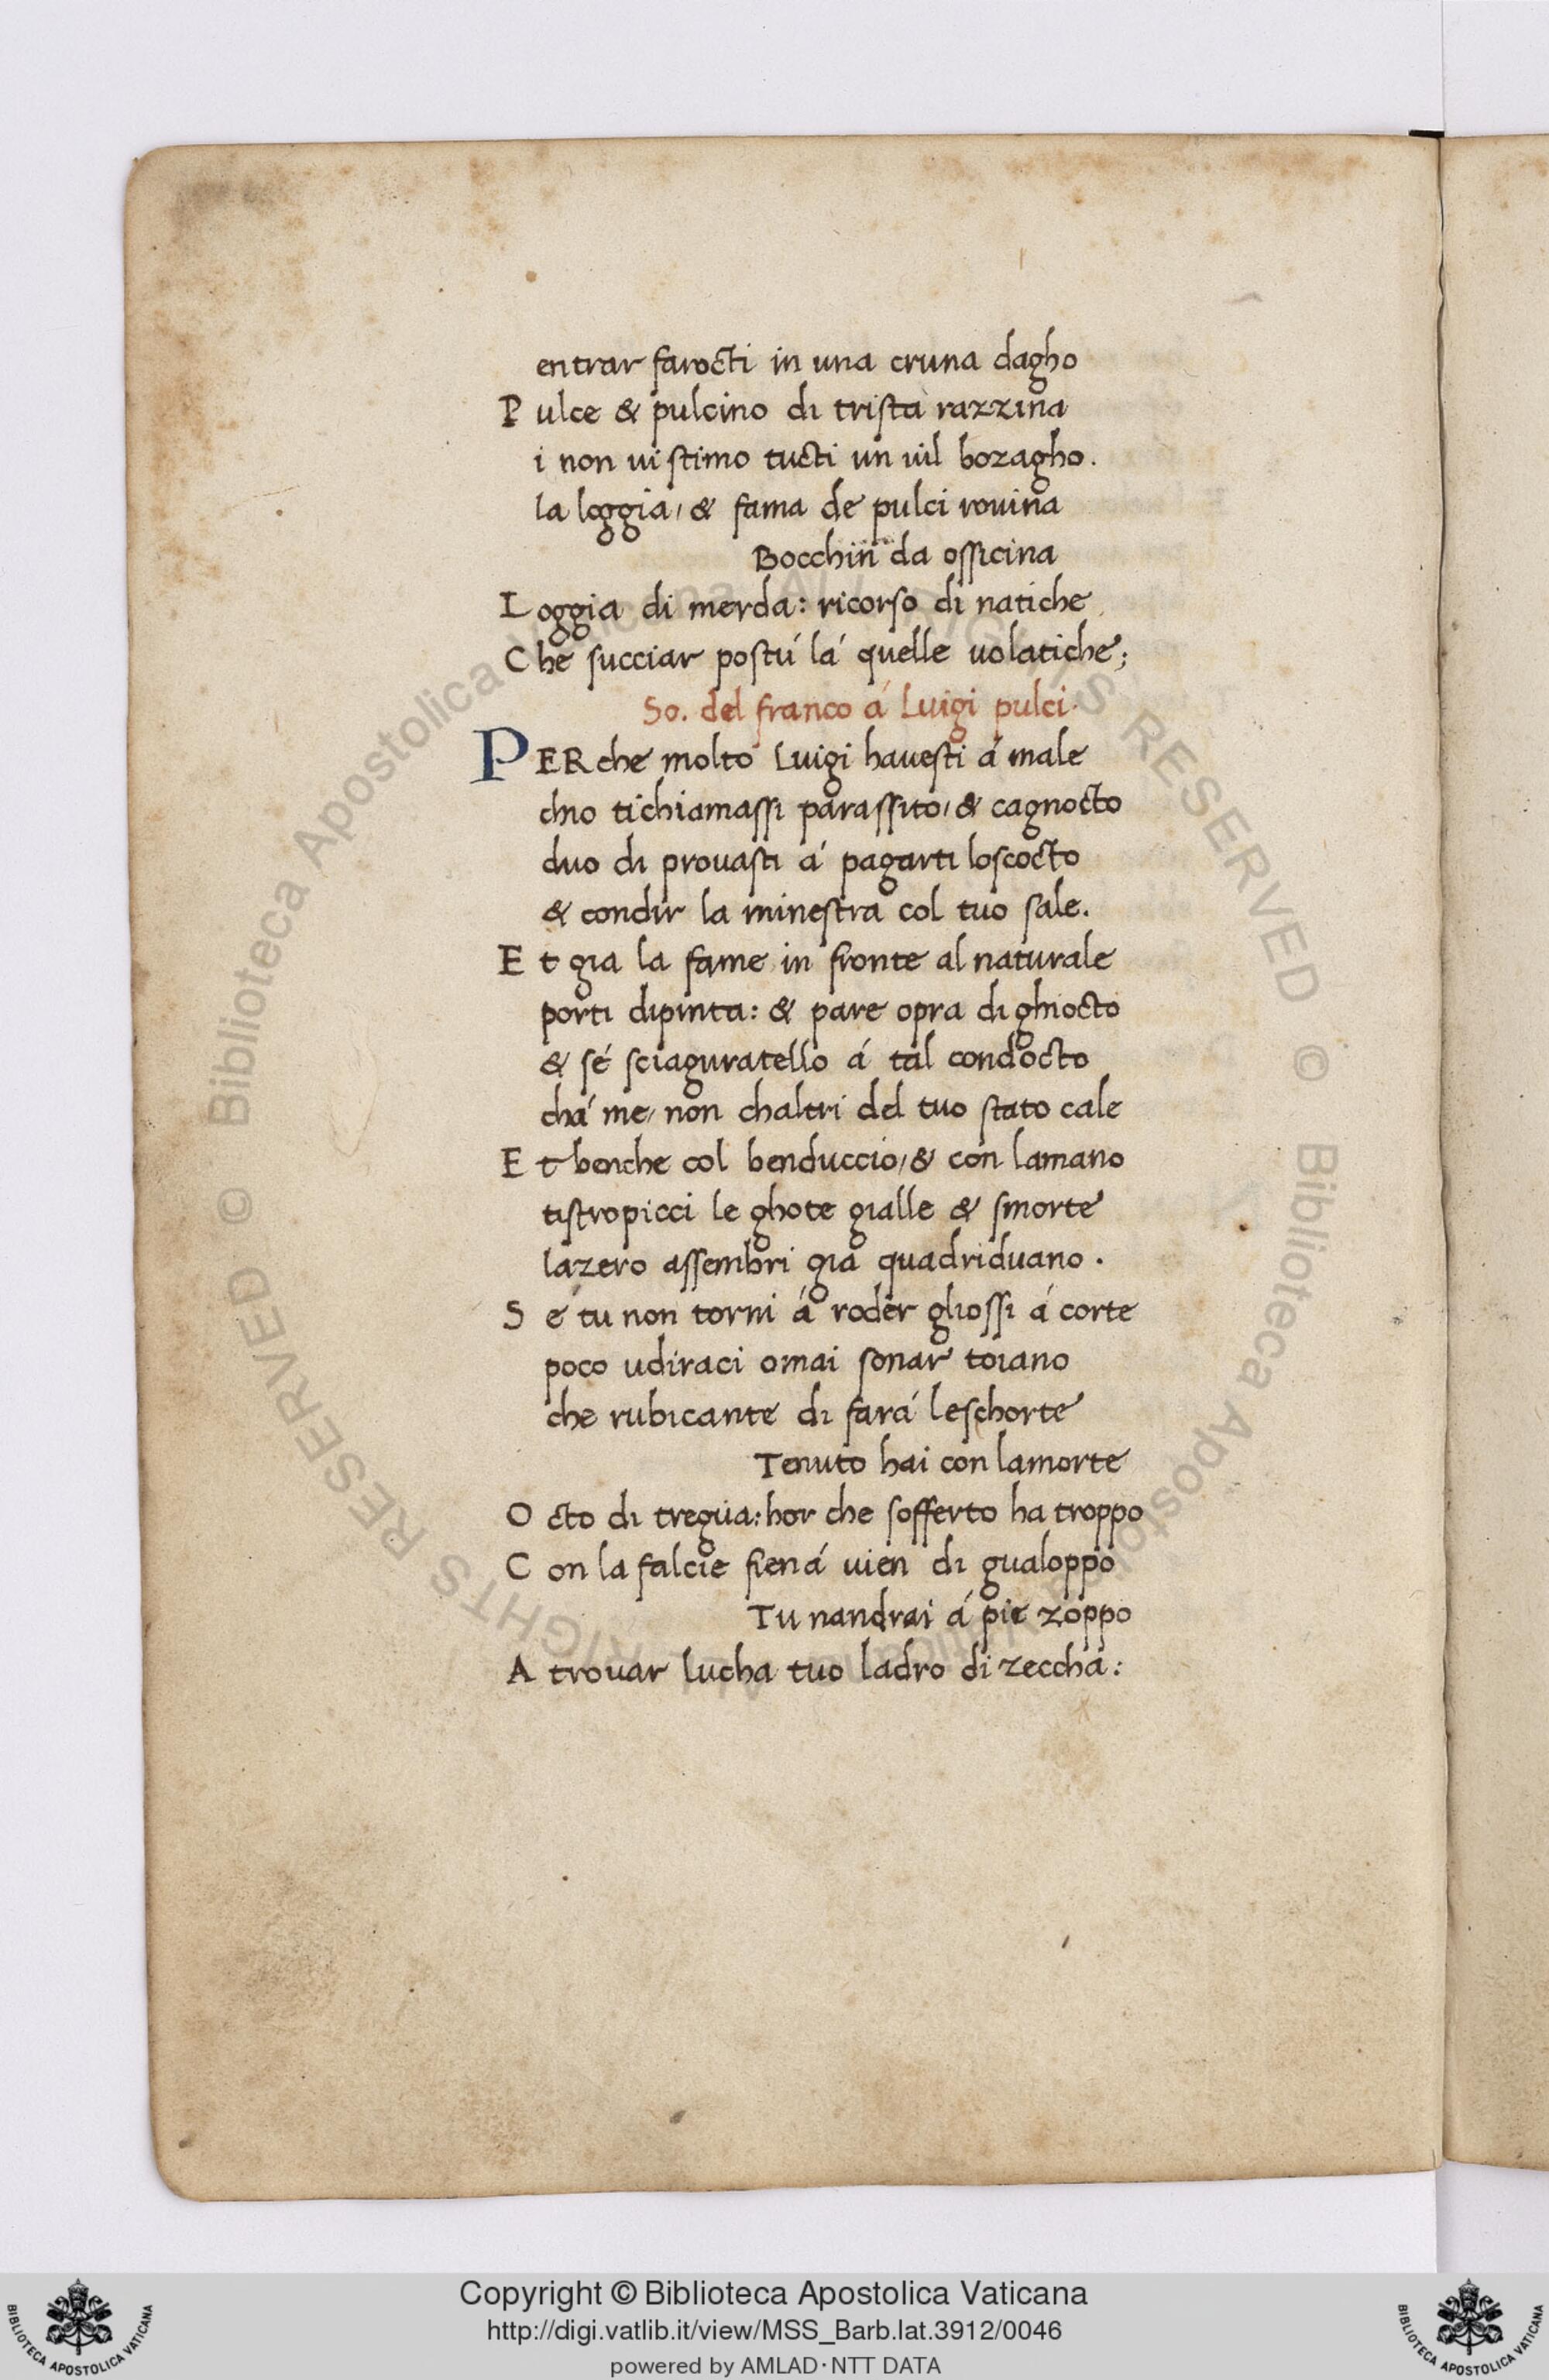 entrar farocti in una cruna dagho
Pulce & pulcino di trista razzina
i non ui stimo tucti un uil bozagho.
la loggia, & fama de pulci rouina
Bocchin da officina
Loggia di merda: ricorso di natiche
Che succiar postú lá quelle uolatiche;
So. del franco á Luigi pulci.
PERche molto Luigi hauesti á male
chio tichiamassi parassito, & cagnocto
duo di prouasti á pagarti loscocto
& condir la minestra col tuo sale.
Et gia la fame in fronte al naturale
porti dipinta: & pare opra di ghiocto
& sé sciaguratello á tal condocto
chá me, non chaltri del tuo stato cale
Et benche col benduccio, & con lamano
tistropicci le ghote gialle & smorte
lazero assembri gia quadriduano.
Sé tu non torni á roder gliossi á corte
poco udiraci omai sonar toiano
che rubicante di fará leschorte
Tenuto hai con lamorte
Octo di tregua: hor che sofferto ha troppo
Con la falcie fiená uien di gualoppo
Tu nandrai á pie zoppo
A trouar lucha tuo ladro di zeccha:
Copyright © Biblioteca Apostolica Vaticana
http://digi.vatlib.it/view/MSS_Barb.lat.3912/0046
powered by AMLAD·NTT DATA
BIBLIOTECA APOSTOLICA VATICANA
BIBLIOTECA APOSTOLICA VATICANA